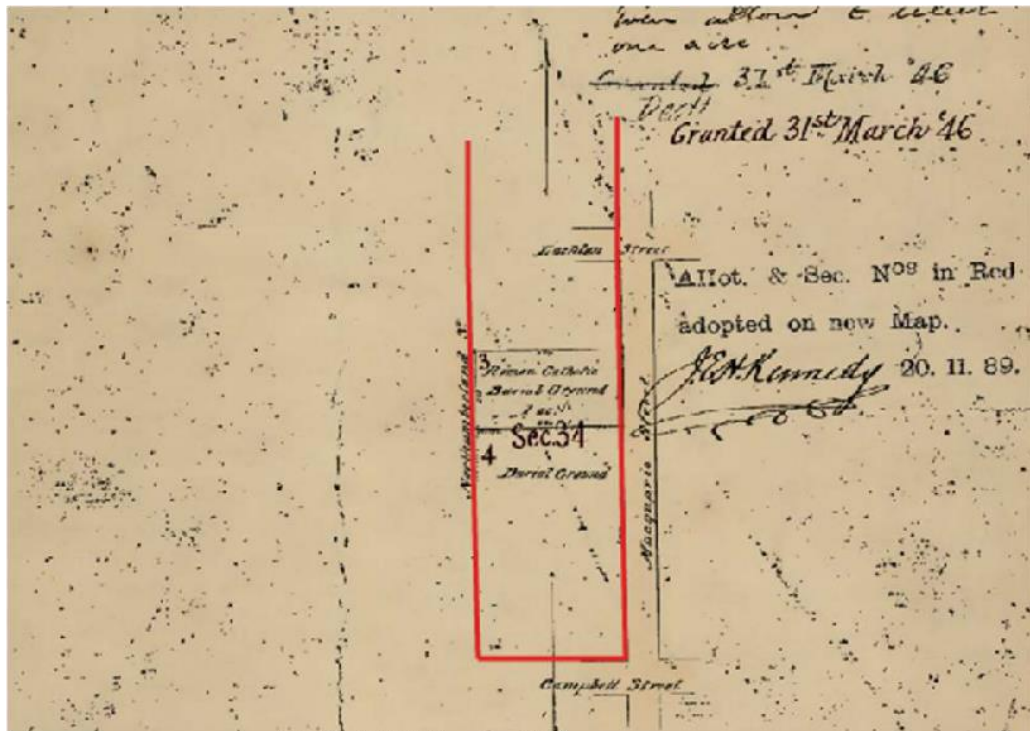 one acre
Granted 31st March '46
Granted 31st March '46
Lachlan Street
Allot. & Sec. Nos in Red
adopted on new Map.
J.E.H. Kennedy 20. 11. 89.
Northumberland St
3
Roman Catholic
Burial Ground
Sec. 34
4
Burial Ground
Macquarie Street
Campbell Street